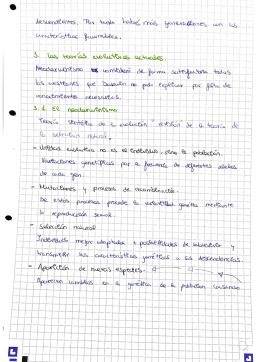 descendientes. Por tanto habrá más generaciones con las
características favorables.
3. Las teorías evolutivas actuales.
Neodarwinismo combaten de forma satisfactoria todas
las cuestiones que Darwin no pudo explicar por falta de
conocimientos necesarios.
3.1. El neodarwinismo
Teoría sintética de la evolución revisión de la teoría de
la selección natural.
- Unidad evolutiva no es el individuo, sino la población.
Mutaciones genéticas por a frecuencia de diferentes alelos
de cada gen.
- Mutaciones y procesos de recombinación.
De estos procesos procede la variabilidad genética mediante
la reproducción sexual.
- Selección natural
Individuos mejor adaptados + posibilidades de sobrevivir y
transmitir las características genéticas a sus descendencias.
- Aparición de nuevas especies.
Aparecen cambios en la genética de la población causando